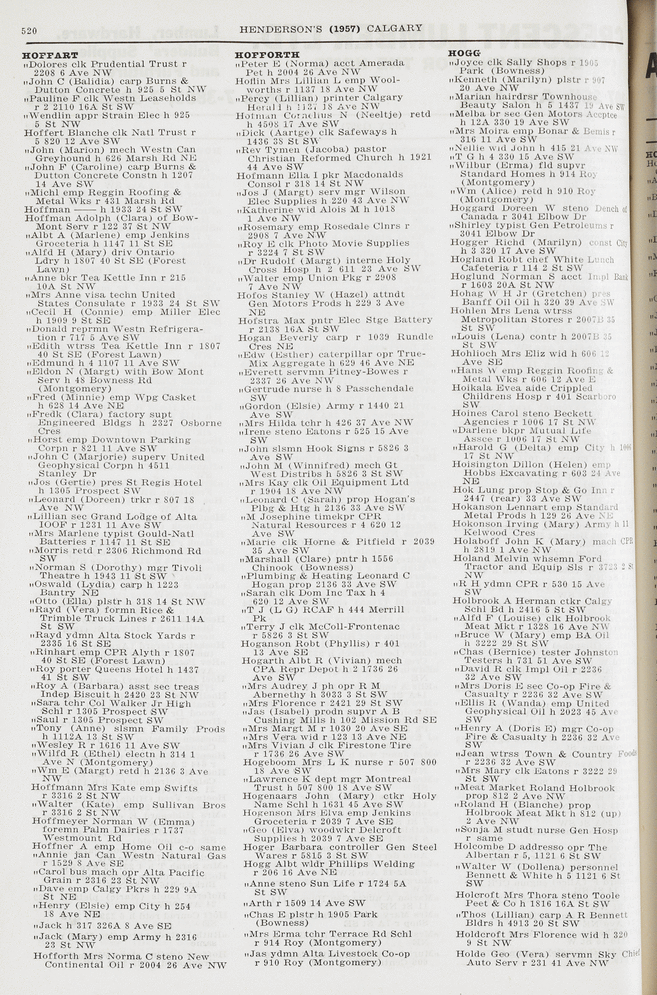 520
HENDERSON'S (1957) CALGARY
HOFFART
„Dolores clk Prudential Trust r
2208 6 Ave NW
„John C (Balidia) carp Burns &
Dutton Concrete h 925 5 St NW
„Pauline F clk Westn Leaseholds
r 2 2110 16A St SW
„Wendlin appr Strain Elec h 925
5 St NW
Hoffert Blanche clk Natl Trust r
5 820 12 Ave SW
„John (Marion) mech Westn Can
Greyhound h 626 Marsh Rd NE
„John F (Caroline) carp Burns &
Dutton Concrete Constn h 1207
14 Ave SW
„Michl emp Reggin Roofing &
Metal Wks r 431 Marsh Rd
Hoffman —— h 1933 24 St SW
Hoffman Adolph (Clara) of Bow-
Mont Serv r 122 37 St NW
„Albt A (Marlene) emp Jenkins
Groceteria h 1147 11 St SE
„Alfd H (Mary) driv Ontario
Ldry h 1807 40 St SE (Forest
Lawn)
„Anne bkr Tea Kettle Inn r 215
10A St NW
„Mrs Anne visa techn United
States Consulate r 1933 24 St SW
„Cecil H (Connie) emp Miller Elec
h 1909 9 St SE
„Donald reprmn Westn Refrigera-
tion r 717 5 Ave SW
„Edith wtrss Tea Kettle Inn r 1807
40 St SE (Forest Lawn)
„Edmund h 4 1107 11 Ave SW
„Eldon N (Margt) with Bow Mont
Serv h 48 Bowness Rd
(Montgomery)
„Fred (Minnie) emp Wpg Casket
h 628 14 Ave NE
„Fredk (Clara) factory supt
Engineered Bldgs h 2327 Osborne
Cres
„Horst emp Downtown Parking
Corpn r 821 11 Ave SW
„John C (Marjorie) superv United
Geophysical Corpn h 4511
Stanley Dr
„Jos (Gertie) pres St Regis Hotel
h 1305 Prospect SW
„Leonard (Doreen) trkr r 807 18
Ave NW
„Lillian sec Grand Lodge of Alta
IOOF r 1231 11 Ave SW
„Mrs Marlene typist Gould-Natl
Batteries r 1147 11 St SE
„Morris retd r 2306 Richmond Rd
SW
„Norman S (Dorothy) mgr Tivoli
Theatre h 1943 11 St SW
„Oswald (Lydia) carp h 1223
Bantry NE
„Otto (Ella) plstr h 318 14 St NW
„Rayd (Vera) formn Rice &
Trimble Truck Lines r 2611 14A
St SW
„Rayd ydmn Alta Stock Yards r
2335 16 St SE
„Rinhart emp CPR Alyth r 1807
40 St SE (Forest Lawn)
„Roy porter Queens Hotel h 1437
41 St SW
„Roy A (Barbara) asst sec treas
Indep Biscuit h 2420 23 St NW
„Sara tchr Col Walker Jr High
Schl r 1305 Prospect SW
„Saul r 1305 Prospect SW
„Tony (Anne) slsmn Family Prods
h 1112A 13 St SW
„Wesley R r 1616 11 Ave SW
„Wilfd R (Ethel) electn h 314 1
Ave N (Montgomery)
„Wm E (Margt) retd h 2136 3 Ave
NW
Hoffmann Mrs Kate emp Swifts
r 3316 2 St NW
„Walter (Kate) emp Sullivan Bros
r 3316 2 St NW
Hoffmeyer Norman W (Emma)
foremn Palm Dairies r 1737
Westmount Rd
Hoffner A emp Home Oil c-o same
„Annie jan Can Westn Natural Gas
r 1529 8 Ave SE
„Carol bus mach opr Alta Pacific
Grain r 2316 23 St NW
„Dave emp Calgy Pkrs h 229 9A
St NE
„Henry (Elsie) emp City h 254
18 Ave NE
„Jack h 317 326A 8 Ave SE
„Jack (Mary) emp Army h 2316
23 St NW
Hofforth Mrs Norma C steno New
Continental Oil r 2004 26 Ave NW
HOFFORTH
„Peter E (Norma) acct Amerada
Pet h 2004 26 Ave NW
Hoflin Mrs Lillian L emp Wool-
worths r 1137 18 Ave NW
„Percy (Lillian) printer Calgary
Herald h 1137 18 Ave NW
Hofman Cornelius N (Neeltje) retd
h 4508 17 Ave SW
„Dick (Aartge) clk Safeways h
1436 38 St SW
„Rev Tymen (Jacoba) pastor
Christian Reformed Church h 1921
44 Ave SW
Hofmann Ella I pkr Macdonalds
Consol r 318 14 St NW
„Jos J (Margt) serv mgr Wilson
Elec Supplies h 220 43 Ave NW
„Katherine wid Alois M h 1018
1 Ave NW
„Rosemary emp Rosedale Clnrs r
2908 7 Ave NW
„Roy E clk Photo Movie Supplies
r 3224 7 St SW
„Dr Rudolf (Margt) interne Holy
Cross Hosp h 2 611 23 Ave SW
„Walter emp Union Pkg r 2908
7 Ave NW
Hofos Stanley W (Hazel) attndt
Gen Motors Prods h 229 3 Ave
NE
Hofstra Max pntr Elec Stge Battery
r 2138 16A St SW
Hogan Beverly carp r 1039 Rundle
Cres NE
„Edw (Esther) caterpillar opr True-
Mix Aggregate h 629 46 Ave NE
„Everett servmn Pitney-Bowes r
2337 26 Ave NW
„Gertrude nurse h 8 Passchendale
SW
„Gordon (Elsie) Army r 1440 21
Ave SW
„Mrs Hilda tchr h 426 37 Ave NW
„Irene steno Eatons r 525 15 Ave
SW
„John slsmn Hook Signs r 5826 3
Ave SW
„John M (Winnifred) mech Gt
West Distribs h 5826 3 St SW
„Mrs Kay clk Oil Equipment Ltd
r 1904 18 Ave NW
„Leonard C (Sarah) prop Hogan's
Plbg & Htg h 2136 33 Ave SW
„M Josephine timekpr CPR
Natural Resources r 4 620 12
Ave SW
„Marie clk Horne & Pitfield r 2039
35 Ave SW
„Marshall (Clare) pntr h 1556
Chinook (Bowness)
„Plumbing & Heating Leonard C
Hogan prop 2136 33 Ave SW
„Sarah clk Dom Inc Tax h 4
620 12 Ave SW
„T J (L G) RCAF h 444 Merrill
Pk
„Terry J clk McColl-Frontenac
r 5826 3 St SW
Hoganson Robt (Phyllis) r 401
13 Ave SE
Hogarth Albt R (Vivian) mech
CPA Repr Depot h 2 1736 26
Ave SW
„Mrs Audrey J ph opr R M
Abernethy h 3033 3 St SW
„Mrs Florence r 2421 29 St SW
„Jas (Isabel) prodn supvr A B
Cushing Mills h 102 Mission Rd SE
„Mrs Margt M r 1030 20 Ave SE
„Mrs Vera wid r 123 13 Ave NE
„Mrs Vivian J clk Firestone Tire
r 1736 26 Ave SW
Hogeboom Mrs L K nurse r 507 800
18 Ave SW
„Lawrence K dept mgr Montreal
Trust h 507 800 18 Ave SW
Hogenaars John (Mary) ctkr Holy
Name Schl h 1631 45 Ave SW
Hogenson Mrs Elva emp Jenkins
Groceteria r 2039 7 Ave SE
„Geo (Elva) woodwkr Delcroft
Supplies h 2039 7 Ave SE
Hoger Barbara controller Gen Steel
Wares r 5815 3 St SW
Hogg Albt wldr Phillips Welding
r 206 16 Ave NE
„Anne steno Sun Life r 1724 5A
St SW
„Arth r 1509 14 Ave SW
„Chas E plstr h 1905 Park
(Bowness)
„Mrs Erma tchr Terrace Rd Schl
r 914 Roy (Montgomery)
„Jas ydmn Alta Livestock Co-op
r 910 Roy (Montgomery)
HOGG
„Joyce clk Sally Shops r 1905
Park (Bowness)
„Kenneth (Marilyn) plstr r 907
20 Ave NW
„Marian hairdrsr Townhouse
Beauty Salon h 5 1437 19 Ave SW
„Melba br sec Gen Motors Aceptce
h 12A 330 19 Ave SW
„Mrs Moira emp Bonar & Bemis r
316 11 Ave SW
„Nellie wid John h 415 21 Ave NW
„T G h 4 330 15 Ave SW
„Wilbur (Erma) fld supvr
Standard Homes h 914 Roy
(Montgomery)
„Wm (Alice) retd h 910 Roy
(Montgomery)
Hoggard Doreen W steno Dench of
Canada r 3041 Elbow Dr
„Shirley typist Gen Petroleums r
3041 Elbow Dr
Hogger Richd (Marilyn) const City
h 3 320 17 Ave SW
Hogland Robt chef White Lunch
Cafeteria r 114 2 St SW
Hoglund Norman S acct Impl Bank
r 1603 20A St NW
Hohag W H Jr (Gretchen) pres
Banff Oil Oil h 320 39 Ave SW
Hohlen Mrs Lena wtrss
Metropolitan Stores r 2007B 35
St SW
„Louis (Lena) contr h 2007B 35
St SW
Hohlioch Mrs Eliz wid h 606 12
Ave SE
„Hans W emp Reggin Roofing &
Metal Wks r 606 12 Ave E
Hoikala Evea aide Crippled
Childrens Hosp r 401 Scarboro
SW
Hoines Carol steno Beckett
Agencies r 1006 17 St NW
„Darlene bkpr Mutual Life
Assce r 1006 17 St NW
„Harold G (Delta) emp City h 1006
17 St NW
Hoisington Dillon (Helen) emp
Hobbs Excavating r 603 24 Ave
NE
Hok Lung prop Stop & Go Inn r
2447 (rear) 33 Ave SW
Hokanson Lennart emp Standard
Metal Prods h 129 26 Ave NE
Hokonson Irving (Mary) Army h 11
Kelwood Cres
Holaboff John K (Mary) mach CPR
h 2819 1 Ave NW
Holand Melvin whsemn Ford
Tractor and Equip Sls r 3723 2 St
NW
„R H ydmn CPR r 530 15 Ave
SW
Holbrook A Herman ctkr Calgy
Schl Bd h 2416 5 St SW
„Alfd F (Louise) clk Holbrook
Meat Mkt r 1328 16 Ave NW
„Bruce W (Mary) emp BA Oil
h 3222 29 St SW
„Chas (Bernice) tester Johnston
Testers h 731 51 Ave SW
„David R clk Impl Oil r 2236
32 Ave SW
„Mrs Doris E sec Co-op Fire &
Casualty r 2236 32 Ave SW
„Ellis R (Wanda) emp United
Geophysical Oil h 2023 45 Ave
SW
„Henry A (Doris E) mgr Co-op
Fire & Casualty h 2236 32 Ave
SW
„Jean wtrss Town & Country Foods
r 2236 32 Ave SW
„Mrs Mary clk Eatons r 3222 29
St SW
„Meat Market Roland Holbrook
prop 812 2 Ave NW
„Roland H (Blanche) prop
Holbrook Meat Mkt h 812 (up)
2 Ave NW
„Sonja M studt nurse Gen Hosp
r same
Holcombe D addresso opr The
Albertan r 5, 1121 6 St SW
„Walter W (Dollena) personnel
Bennett & White h 5 1121 6 St
SW
Holcroft Mrs Thora steno Toole
Peet & Co h 1816 16A St SW
„Thos (Lillian) carp A R Bennett
Bldrs h 4913 20 St SW
Holdcroft Mrs Florence wid h 320
9 St NW
Holde Geo (Vera) servmn Sky Chief
Auto Serv r 231 41 Ave NW